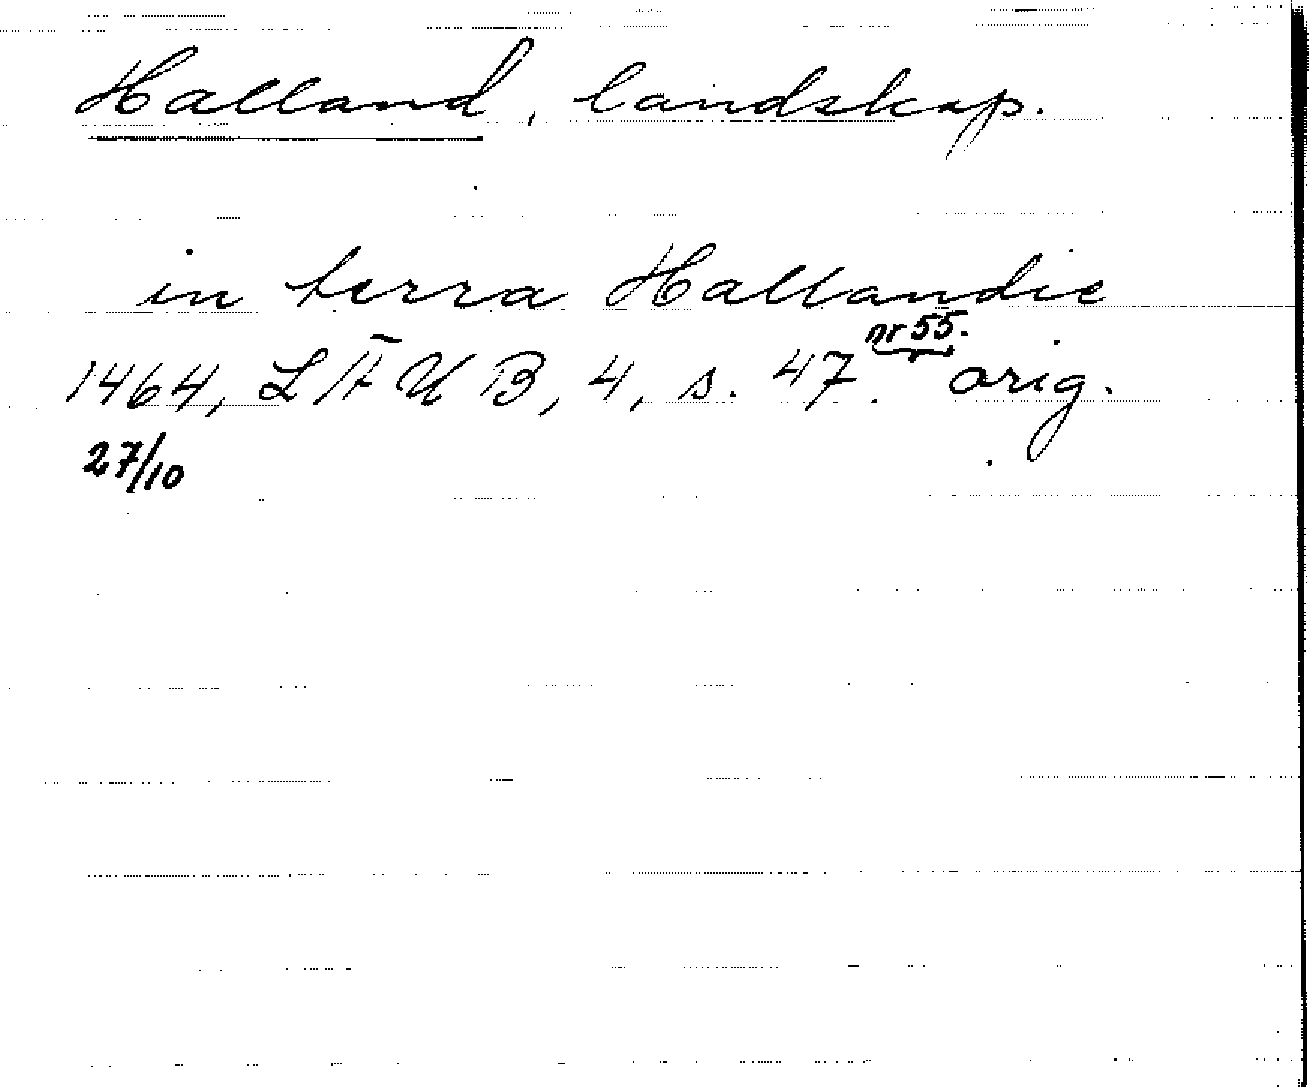 Halland, landskap.
in terra Hallandie
nr 55.
1464, LÄUB, 4, s. 47. orig.
27/10